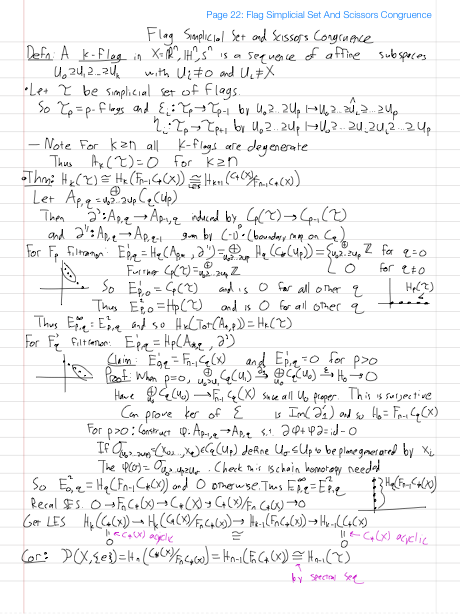 Page 22: Flag Simplicial Set And Scissors Congruence
Flag Simplicial Set and Scissors Congruence
Defn: A k-flag in X=ℝⁿ, ℍⁿ, Sⁿ is a sequence of affine subspaces
U₀⊇U₁⊇...⊇Uₖ with Uᵢ≠0 and Uᵢ≠X
• Let 𝒯 be simplicial set of flags.
So 𝒯ₚ=p-flags and εᵢ:𝒯ₚ→𝒯ₚ₋₁ by U₀⊇...⊇Uₚ↦U₀⊇...⊇Ûᵢ⊇...⊇Uₚ
ηᵢ:𝒯ₚ→𝒯ₚ₊₁ by U₀⊇...⊇Uₚ↦U₀⊇...⊇Uᵢ⊇Uᵢ⊇...⊇Uₚ
– Note For k≥n all k-flags are degenerate
Thus Hₖ(𝒯)=0 for k≥n
• Thm: Hₖ(𝒯)≅Hₖ(Fₙ₋₁C_*(X))≅Hₖ₊₁(C_*(X)/Fₙ₋₁C_*(X))
Let A_{p,q}=⊕_{U₀⊇...⊇Uₚ} C_q(Uₚ)
Then ∂':A_{p,q}→A_{p-1,q} induced by Cₚ(𝒯)→Cₚ₋₁(𝒯)
and ∂'':A_{p,q}→A_{p,q-1} given by (-1)ᵖ(boundary map on C_q)
For Fₚ filtration: E¹_{p,q}=H_q(A_{p,*},∂'')=⊕_{U₀⊇...⊇Uₚ} H_q(C_*(Uₚ))={⊕_{U₀⊇...⊇Uₚ} ℤ for q=0
Further Cₚ(𝒯)=⊕_{U₀⊇...⊇Uₚ} ℤ 0 for q≠0
So E¹_{p,0}=Cₚ(𝒯) and is 0 for all other q Hₚ(𝒯)
Thus E²_{p,0}=Hₚ(𝒯) and is 0 for all other q
Thus E^∞_{p,q}=E²_{p,q} and so Hₖ(Tot(A_{*,*}))=Hₖ(𝒯)
For F_q filtration: E¹_{p,q}=Hₚ(A_{*,q},∂')
Claim: E¹_{0,q}=Fₙ₋₁C_q(X) and E¹_{p,q}=0 for p>0
Proof: When p=0, ⊕_{U₀⊇U₁} C_q(U₁)→⊕_{U₀} C_q(U₀)→H₀→0
Have ⊕_{U₀} C_q(U₀)→Fₙ₋₁C_q(X) since all U₀ proper. This is surjective
Can prove ker of ε is Im(∂'₁) and so H₀=Fₙ₋₁C_q(X)
For p>0: Construct φ:A_{p-1,q}→A_{p,q} s.t. ∂φ+φ∂=id-0
define U_σ≤Uₚ to be plane generated by xᵢ
Check this is chain homotopy needed
So E²_{0,q}=H_q(Fₙ₋₁C_*(X)) and 0 otherwise. Thus E^∞_{p,q}=E²_{p,q} H_q(Fₙ₋₁C_*(X))
Recall SES. 0→Fₙ₋₁C_*(X)→C_*(X)→C_*(X)/Fₙ₋₁C_*(X)→0
Get LES Hₖ(C_*(X))→Hₖ(C_*(X)/Fₙ₋₁C_*(X))→Hₖ₋₁(Fₙ₋₁C_*(X))→Hₖ₋₁(C_*(X))
0 ← C_*(X) acyclic ≅ 0 ← C_*(X) acyclic
Cor: 𝒫(X,{e})=Hₙ(C_*(X)/Fₙ₋₁C_*(X))=Hₙ₋₁(Fₙ₋₁C_*(X))≅Hₙ₋₁(𝒯)
by spectral seq